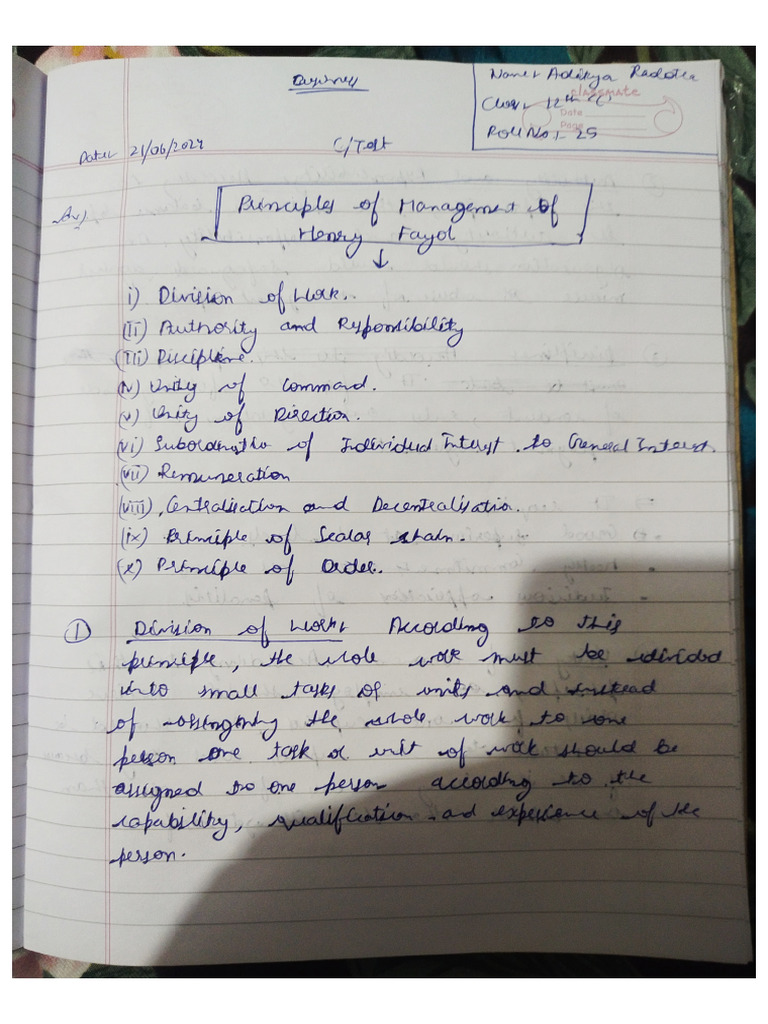 Business
Name:- Aditya
classmate
Class:- 12th "C"
Date
Page
Roll No:- 25
Date:- 21/06/2024
C/Test
Ans)
Principles of Management of
Henry Fayol
↓
i) Division of Work.
(ii) Authority and Responsibility
(iii) Discipline.
(iv) Unity of Command.
(v) Unity of Direction.
(vi) Subordinatio of Individual Interest to General Interest
(vii) Remuneration
(viii) Centralisation and Decentralisation.
(ix) Principle of Scalar chain.
(x) Principle of Order.
① Division of Work:- According to this
principle, the whole work must be divided
into small tasks or units and instead
of assigning the whole work to one
person one task or unit of work should be
assigned to one person according to the
capability, qualification and experience of the
person.